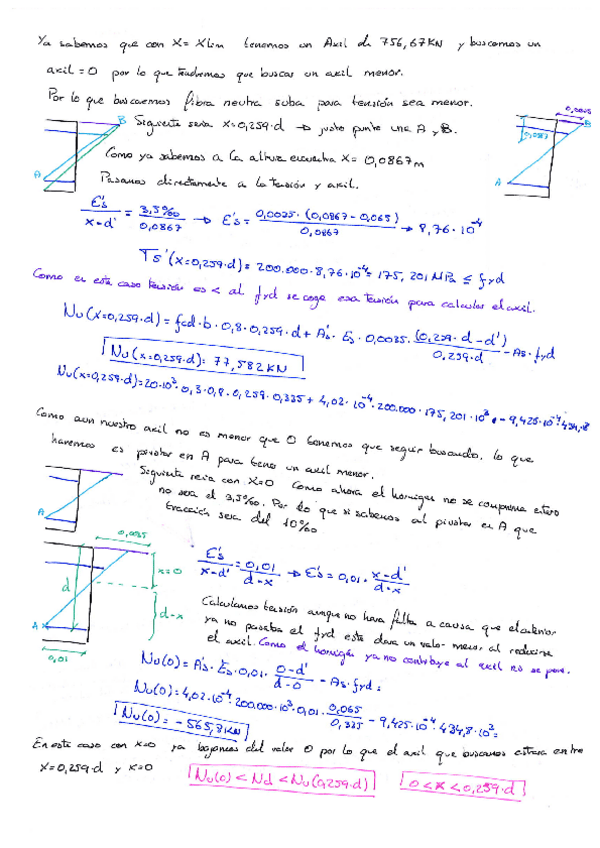 Ya sabemos que con X = Xlim tenemos un Axil de 756,67KN y buscamos un
axil = 0 por lo que tendremos que buscar un axil menor.
Por lo que buscaremos fibra neutra suba para tensión sea menor.
Siguiente seria X=0,259·d → justo punto une A y B.
Como ya sabemos a la altura encuentra X = 0,0867m
Pasamos directamente a la tensión y axil.
A
B
0,0035
0,0867
B
A
E's / x-d' = 3,5‰ / 0,0867 → E's = 0,0035·(0,0867-0,065) / 0,0867 → 8,76·10⁻⁴
Ts'(x=0,259·d) = 200.000·8,76·10⁻⁴ = 175,201 MPa ≤ fyd
Como en este caso tensión es < al fyd se coge esa tensión para calcular el axil.
Nu(x=0,259·d) = fcd·b·0,8·0,259·d + A's·Es·0,0035·(0,259·d-d') / 0,259·d - As·fyd
Nu(x=0,259·d): 77,582 KN
Nu(x=0,259·d)=20·10³·0,3·0,8·0,259·0,335 + 4,02·10⁻⁴·200.000·175,201·10³ - 9,425·10⁻⁴·434,8
Como aun nuestro axil no es menor que 0 tenemos que seguir buscando, lo que
haremos es pivotar en A para tener un axil menor.
Siguiente seria con X=0 Como ahora el hormigon no se comprime entero
no sera el 3,5‰. Por lo que si sabemos al pivotar en A que
traccion sera del 10‰
A
0,0035
x=0
d
d-x
A
0,01
E's / x-d' = 0,01 / d-x → E's = 0,01· x-d' / d-x
Calculamos tensión aunque no hara falta a causa que el anterior
ya no pasaba el fyd este dara un valor menor al reducirse
el axil. Como el hormigón ya no contribuye al axil no se pone.
Nu(0) = A's·Es·0,01· 0-d' / d-0 - As·fyd =
Nu(0) = 4,02·10⁻⁴·200.000·10³·0,01· 0,065 / 0,335 - 9,425·10⁻⁴·434,8·10³=
Nu(0) = -565,8KN
En este caso con x=0 ya bajamos del valor 0 por lo que el axil que buscamos estara entre
X=0,259·d y X=0
Nu(0) < Nd < Nu(0,259·d)
0 < X < 0,259·d